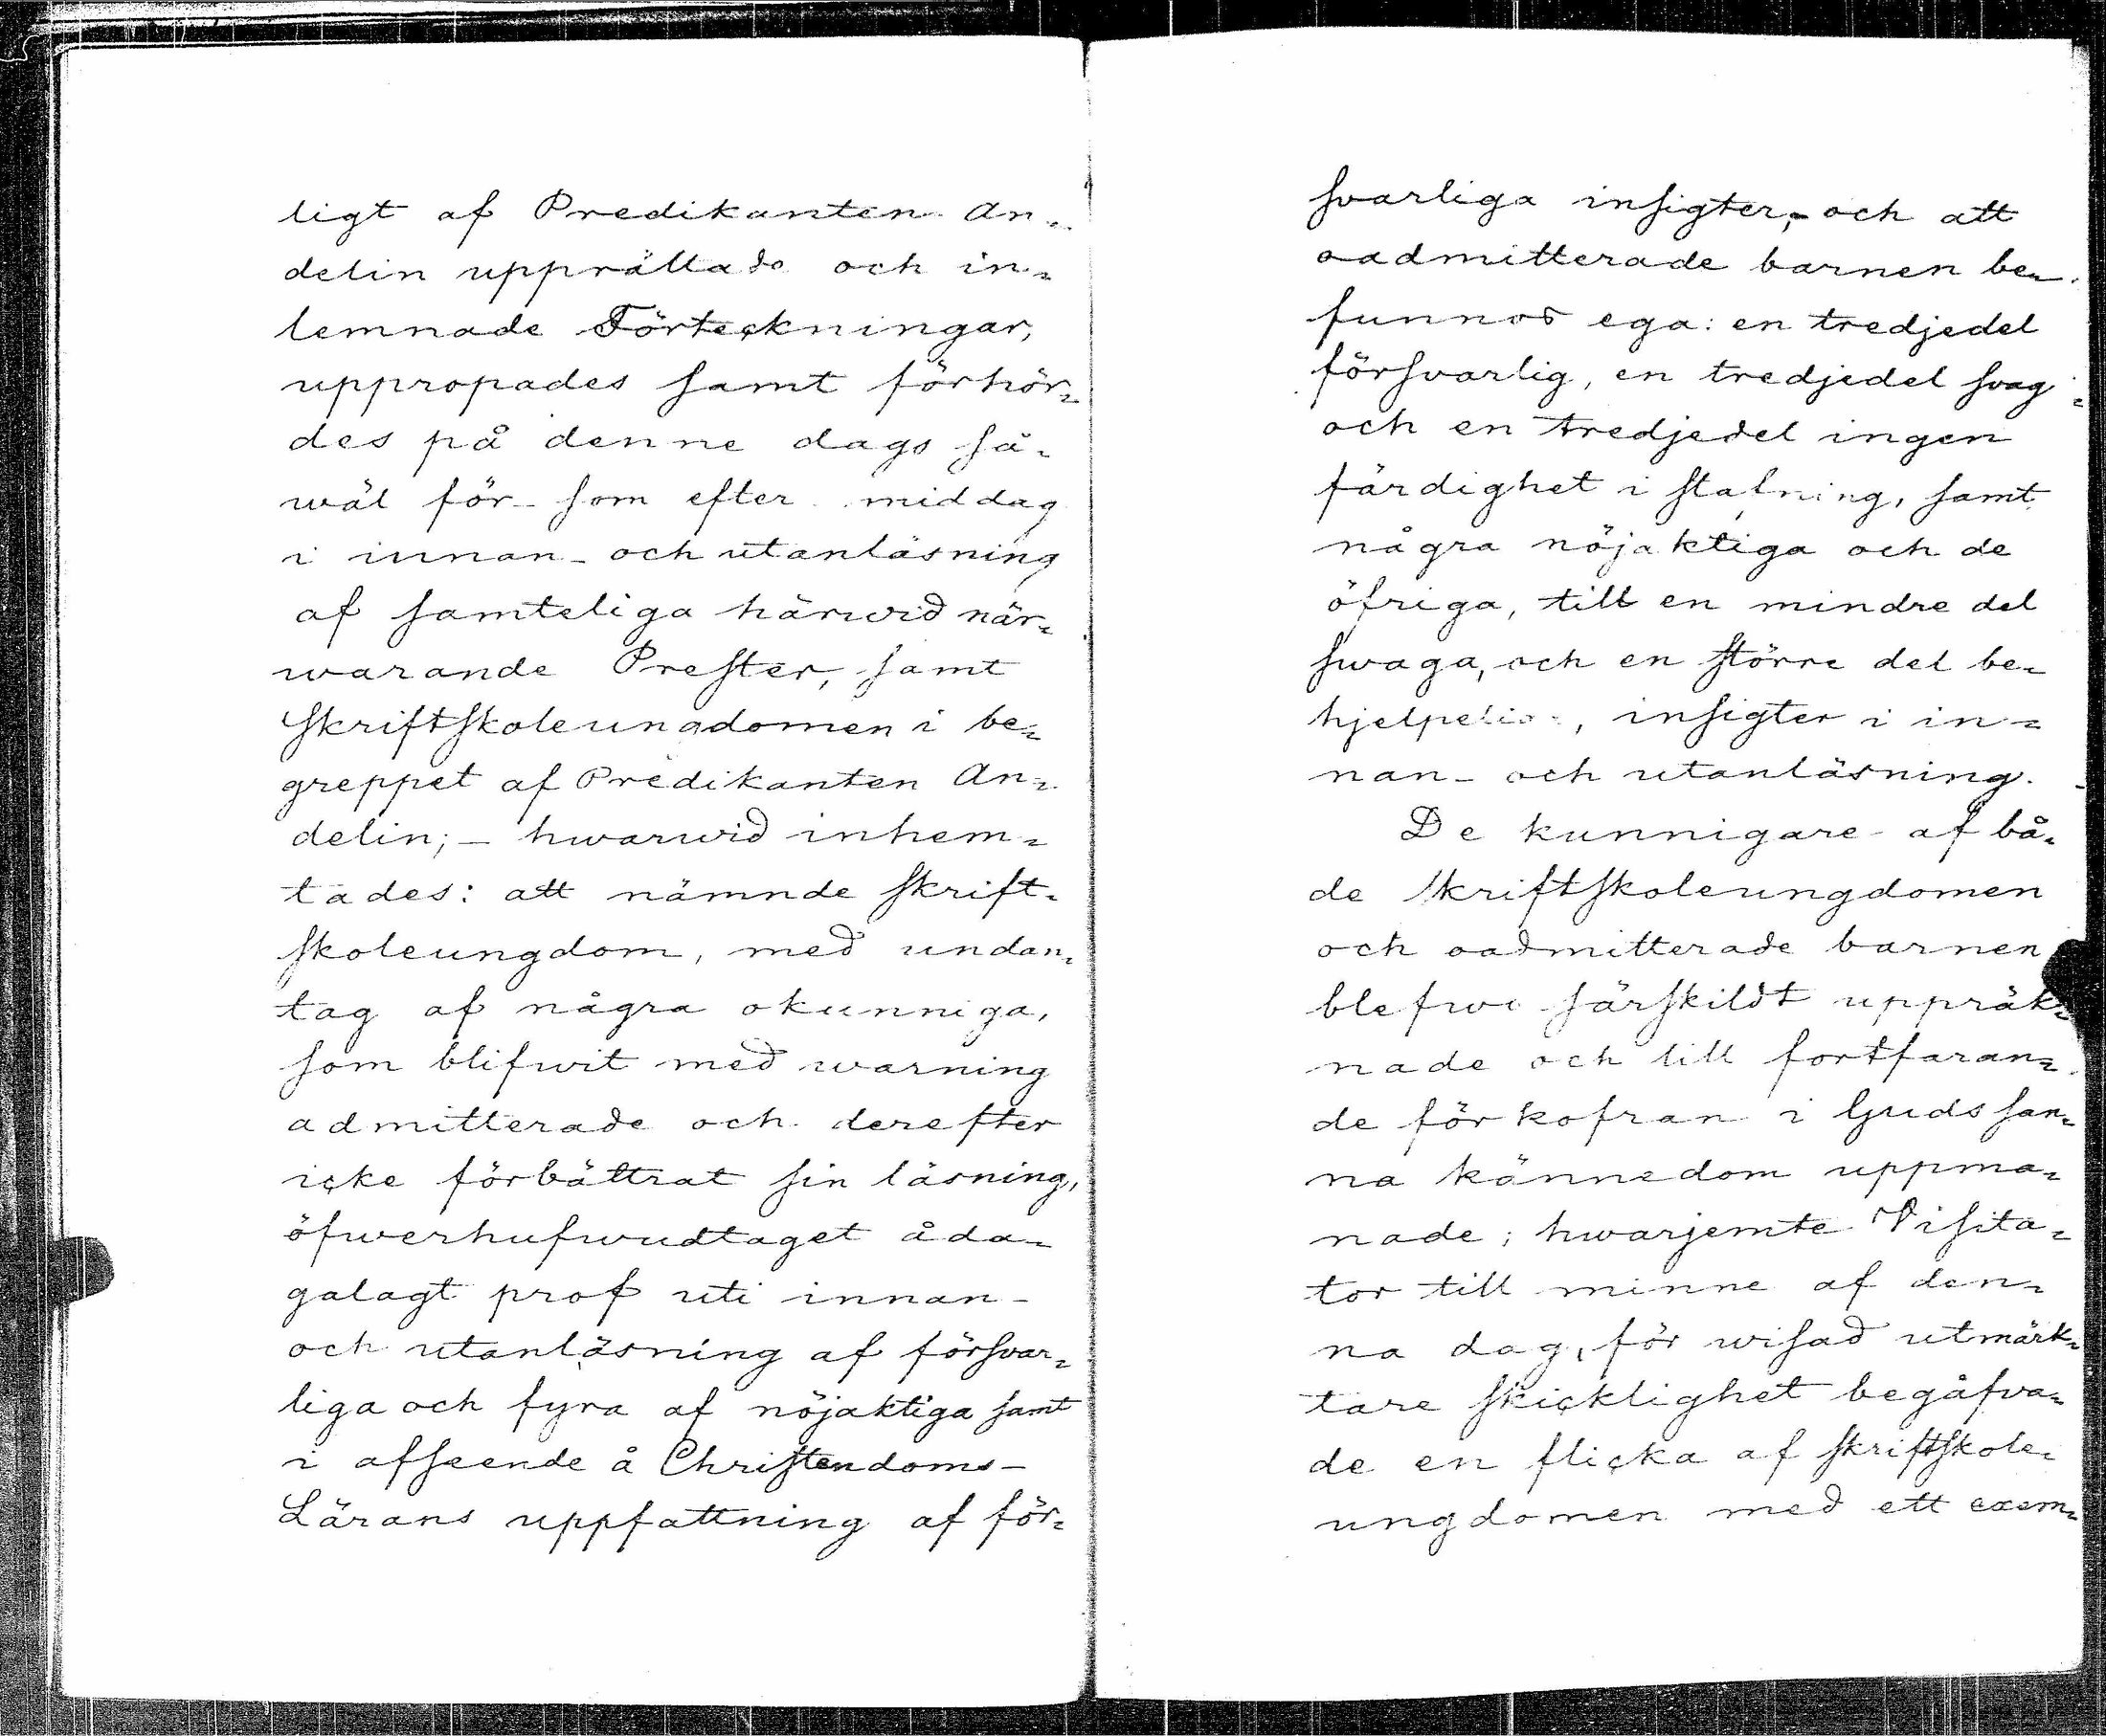 ligt af Predikanten An-
delin upprättade och in-
lemnade Förteckningar,
uppropades samt förhör-
des på denne dags så-
wäl för- som efter middag
i innan- och utanläsning
af samteliga härwid när-
warande Prester, samt
Skriftskoleungdomen i be-
greppet af Predikanten An-
delin; - hwarwid inhem-
tades: att nämnde skrift-
skoleungdom, med undan-
tag af några okunniga,
som blifwit med warning
admitterade och derefter
icke förbättrat sin läsning,
öfwerhufwudtaget åda-
galagt prof uti innan-
och utanläsning af försvar-
liga och fyra af nöjaktiga samt
i afseende å Christendoms-
Lärans uppfattning af för-
svarliga insigter, - och att
oadmitterade barnen be-
funnos ega: en tredjedel
försvarlig, en tredjedel svag
och en tredjedel ingen
färdighet i stafning, samt
några nöjaktiga och de
öfriga, till en mindre del
swaga, och en större del be-
hjelpelig, insigter i in-
nan- och utanläsning.
De kunnigare af bå-
de skriftskoleungdomen
och oadmitterade barnen
blefwo särskildt uppräk-
nade och till fortfaran-
de förkofran i Guds san-
na kännedom uppma-
nade; hwarjemte Visita-
tor till minne af den-
na dag, för wisad utmärk-
tare skicklighet begåfva-
de en flicka af skriftskole-
ungdomen med ett exem-